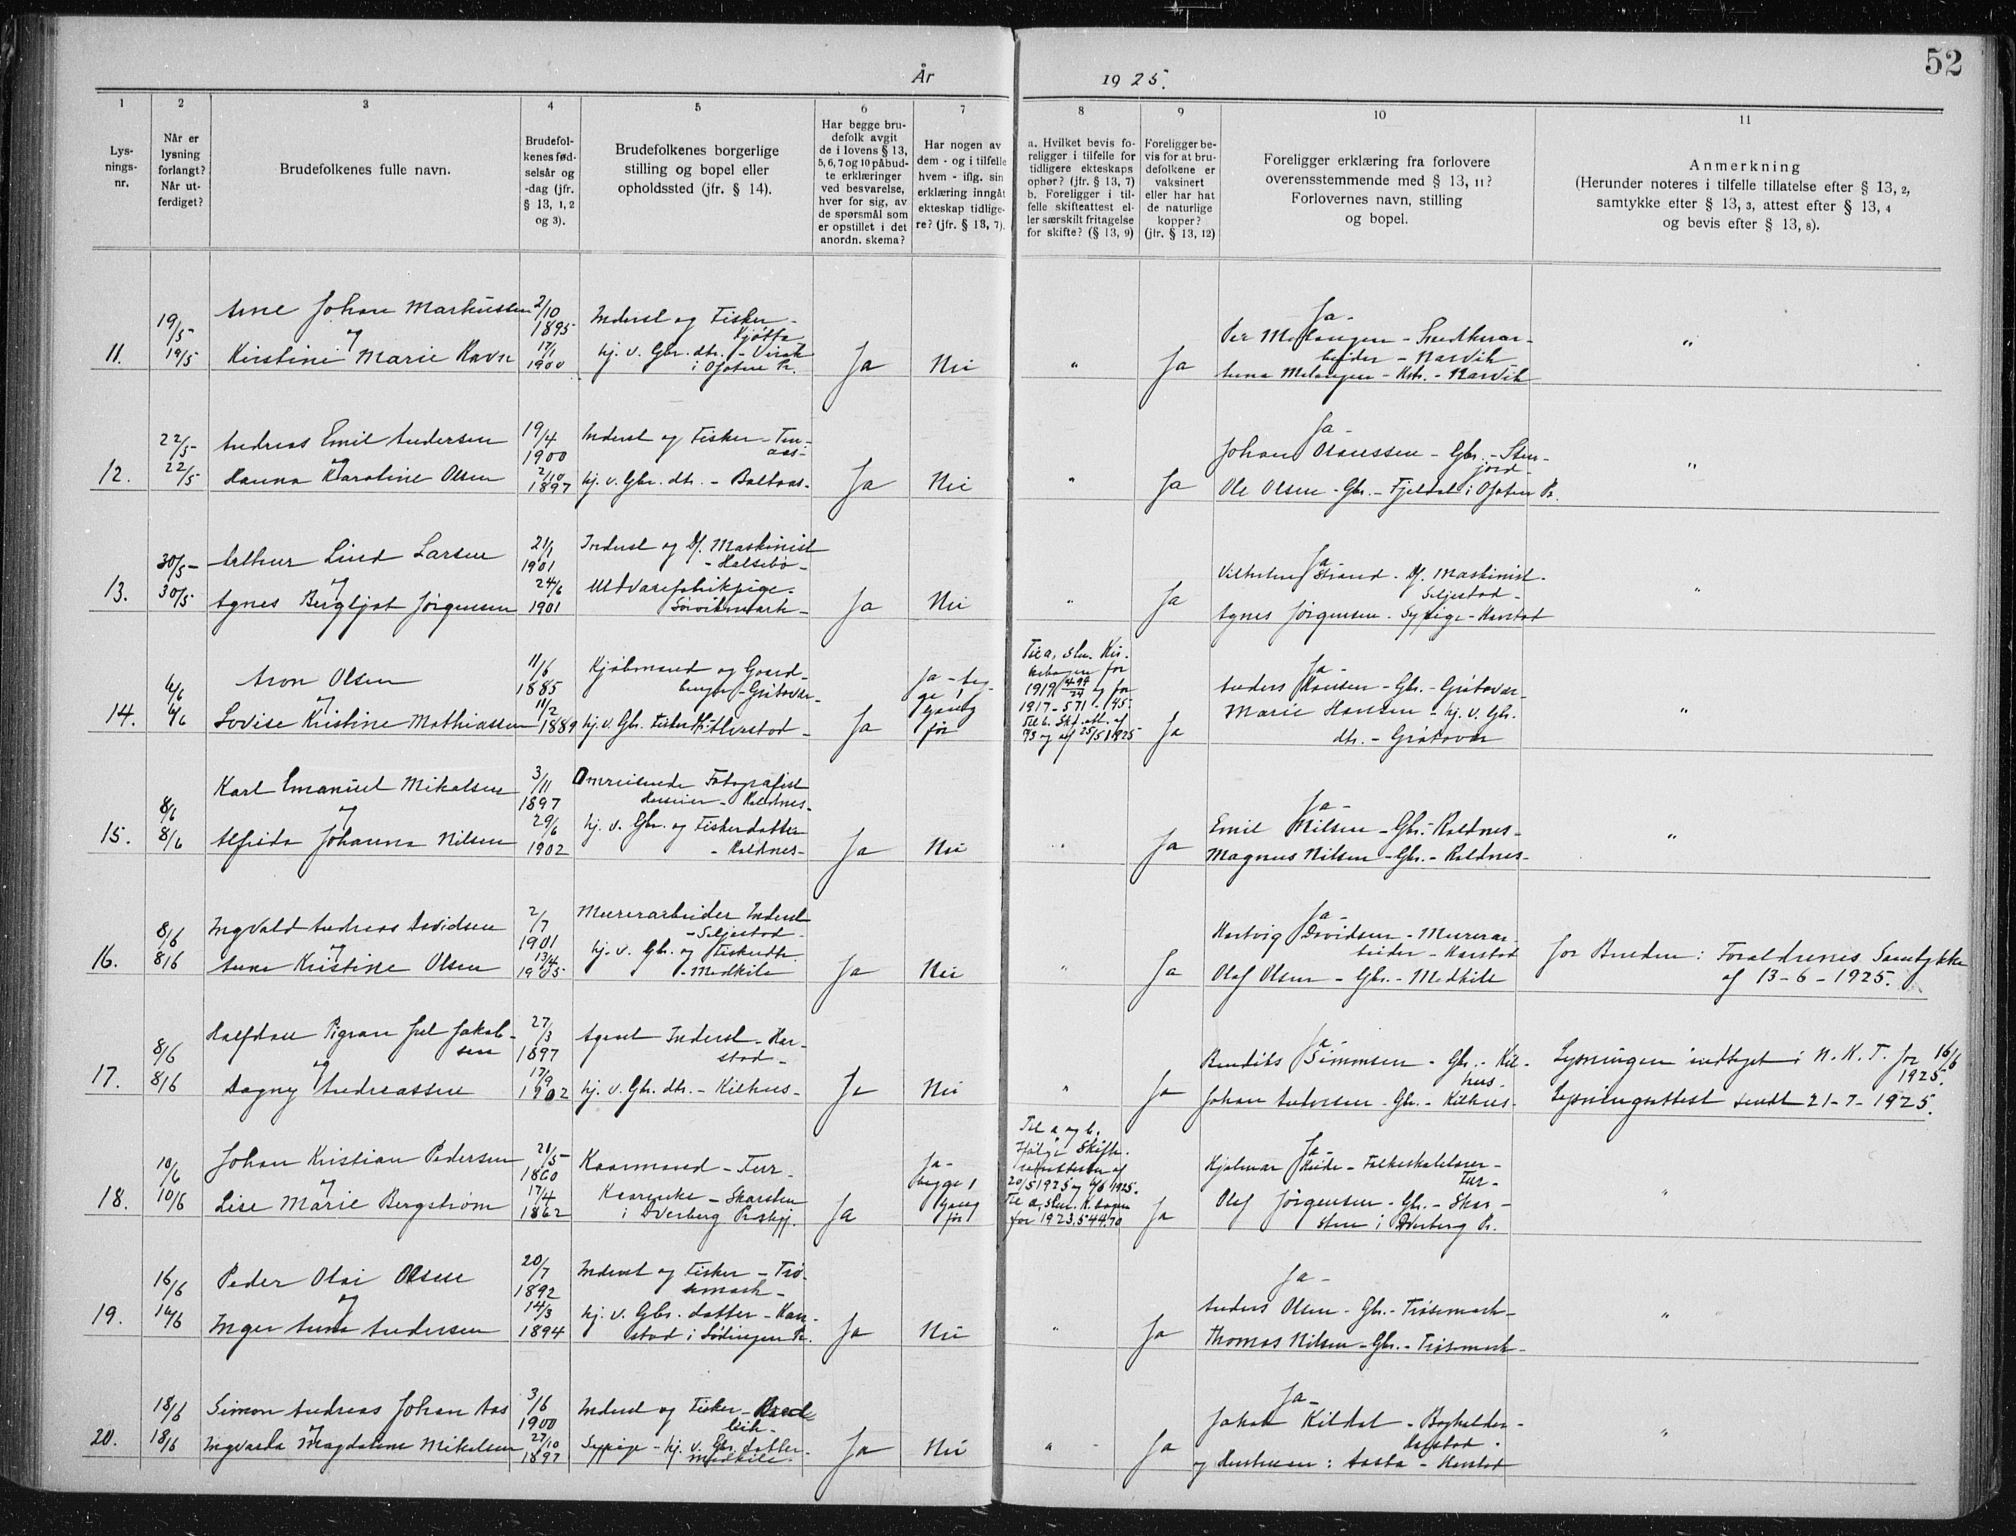 52
År 1925.
1 2 3 4 5 6 7 8 9 10 11
Lysningsnr.
Når er lysning forlangt? Når utferdiget?
Brudefolkenes fulle navn.
Brudefolkenes fødselsår og -dag (jfr. § 13, 1, 2 og 3).
Brudefolkenes borgerlige stilling og bopel eller opholdssted (jfr. § 14).
Har begge brudefolk avgit de i lovens § 13, 5, 6, 7 og 10 påbudte erklæringer ved besvarelse, hver for sig, av de spørsmål som er opstillet i det anordn. skema?
Har nogen av dem - og i tilfelle hvem - iflg. sin erklæring inngåt ekteskap tidligere? (jfr. § 13, 7).
a. Hvilket bevis foreligger i tilfelle for tidligere ekteskaps ophør? (jfr. § 13, 7)
b. Foreligger i tilfelle skifteattest eller særskilt fritagelse for skifte? (§ 13, 9)
Foreligger bevis for at brudefolkene er vaksinert eller har hat de naturlige kopper? (jfr. § 13, 12)
Foreligger erklæring fra forlovere overensstemmende med § 13, 11? Forlovernes navn, stilling og bopel.
Anmerkning
(Herunder noteres i tilfelle tillatelse efter § 13, 2, samtykke efter § 13, 3, attest efter § 13, 4 og bevis efter § 13, 8).
11. 19/5 19/5
Arne Johan Markussen 2/10 1895 Inderst og Fisker - Kjøtta
og
Kirstine Marie Ravn 17/1 1900 hj. v. Gbr. dtr. - i Ofoten Pr.
Ja Nei " Ja
Ja -
Per - Narvik
Anna - Narvik
"
12. 22/5 22/5
Andreas Emil Andersen 19/4 1900 Inderst og Fisker -
og
Hanna Karoline Olsen 2/10 1897 hj. v. Gbr. dtr. -
Ja Nei " Ja
Ja -
Johan - Gbr. - Stenjord -
Ole Olsen - Gbr. - Fjeldal i Ofoten Pr.
"
13. 30/5 30/5
Arthur Lind Larsen 21/1 1901 Inderst og Df. Maskinist - Halsebø -
og
Agnes Bergljot Jørgensen 24/6 1901 Uldvarefabrikpige - Sørvikmark -
Ja Nei " Ja
Ja -
Vilhelm Strand - Df. Maskinist - Seljestad -
Agnes Jørgensen - Sypige - Harstad
"
14. 6/6 6/6
Aron Olsen 11/6 1885 Kjøbmand og Gaardbruger - Grøtavær -
og
Lovise Kristine Mathiassen 11/2 1889 hj. v. Gbr. Fisker
Ja
Ja - begge 1 Gang før
Til a, for 1919 og for 1917 - 571 - 45.
Til b. Sk. att. af og af 25/5 1925
Ja
Ja -
Anders Hansen - Gbr. - Grøtavær -
Marie Hansen - hj. v. Gbr. dtr. - Grøtavær
"
15. 8/6 8/6
Karl Emanuel Mikalsen 3/11 1897 Omreisende Fotografist - Kaldnes -
og
Alfrida Johanna Nilsen 29/6 1902 hj. v. Gbr. og Fiskerdatter - Kaldnes -
Ja Nei " Ja
Ja -
Emil Nilsen - Gbr. - Kaldnes -
Magnus Nilsen - Gbr. - Kaldnes -
"
16. 8/6 8/6
Ingvald Andreas Davidsen 2/7 1901 Murerarbeider Inderst - Seljestad -
og
Anna Kristine Olsen 13/4 1905 hj. v. Gbr. og Fiskerdtr. - Medkile
Ja Nei " Ja
Ja -
Hartvig Davidsen - Murerarbeider - Harstad
Olaf Olsen - Gbr. - Medkile
for Bruden: Forældrenes Samtykke af 13-6-1925.
17. 8/6 8/6
Halfdan Pigran Juel Jakobsen 27/3 1897 Agent Inderst - Harstad -
og
Dagny Andreassen 17/9 1902 hj. v. Gbr. dtr. - Kilhus -
Ja Nei " Ja
Ja -
Benedikt Simonsen - Gbr. - Kilhus -
Johan Andersen - Gbr. - Kilhus -
Lysningen indtaget i N. K. T. for 16/6 1925.
Lysningsattest sendt 21-7-1925.
18. 10/6 10/6
Johan Kristian Pedersen 21/5 1860 Kaarmand -
og
Lise Marie Bergstrøm 17/4 1862 Kaarenke - Skarsten i Dverberg Prstgj.
Ja
Ja - begge 1 Gang før
Til a og b. Ifølge af 20/5 1925 og 4/6 1925.
Til a, for 1923.
Ja
Ja -
Hjalmar -
Olaf Jørgensen - Gbr. - Skarsten i Dverberg Pr.
"
19. 16/6 16/6
Peder Olai Olsen 20/7 1892 Inderst og Fisker - Trøsemark -
og
Inger Anna Andersen 14/3 1894 hj. v. Gbr. datter - Kanstad i Lødingen Pr.
Ja Nei " Ja
Ja -
Anders Olsen - Gbr. - Trøsemark -
Thomas Nilsen - Gbr. - Trøsemark -
"
20. 18/6 18/6
Simon Andreas Johan Aas 3/6 1900 Inderst og Fisker -
og
Ingvarda Magdalene Mikalsen 27/10 1897 Sypige - hj. v. Gbr. datter - Medkile.
Ja Nei " Ja
Ja -
Jakob Kildal - Bogholder - Harstad.
og Hustruen: Aasta - Harstad
"